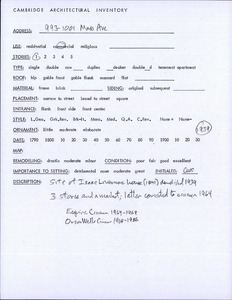 CAMBRIDGE ARCHITECTURAL INVENTORY
ADDRESS: 993-1001 Mass Ave
USE: residential commercial religious
STORIES: 1 2 3 4 5
TYPE: single double row duplex decker double d tenement apartment
ROOF: hip gable front gable flank mansard flat
MATERIAL: frame brick SIDING: original subsequent
PLACEMENT: narrow to street broad to street square
ENTRANCE: flank front side front centre
STYLE:
ORNAMENT: little moderate elaborate
1939
DATE: 1790 1800 10 20 30 40 50 60 70 80 90 1900 10 20 30
MAP:
REMODELING: drastic moderate minor CONDITION: poor fair good excellent
IMPORTANCE TO SETTING: detrimental none moderate great INITIALS:
DESCRIPTION: Site of Isaac Livermore house
3 stores and a market; latter converted to cinema 1969
Esquire Cinema
Orson Welles Cinema